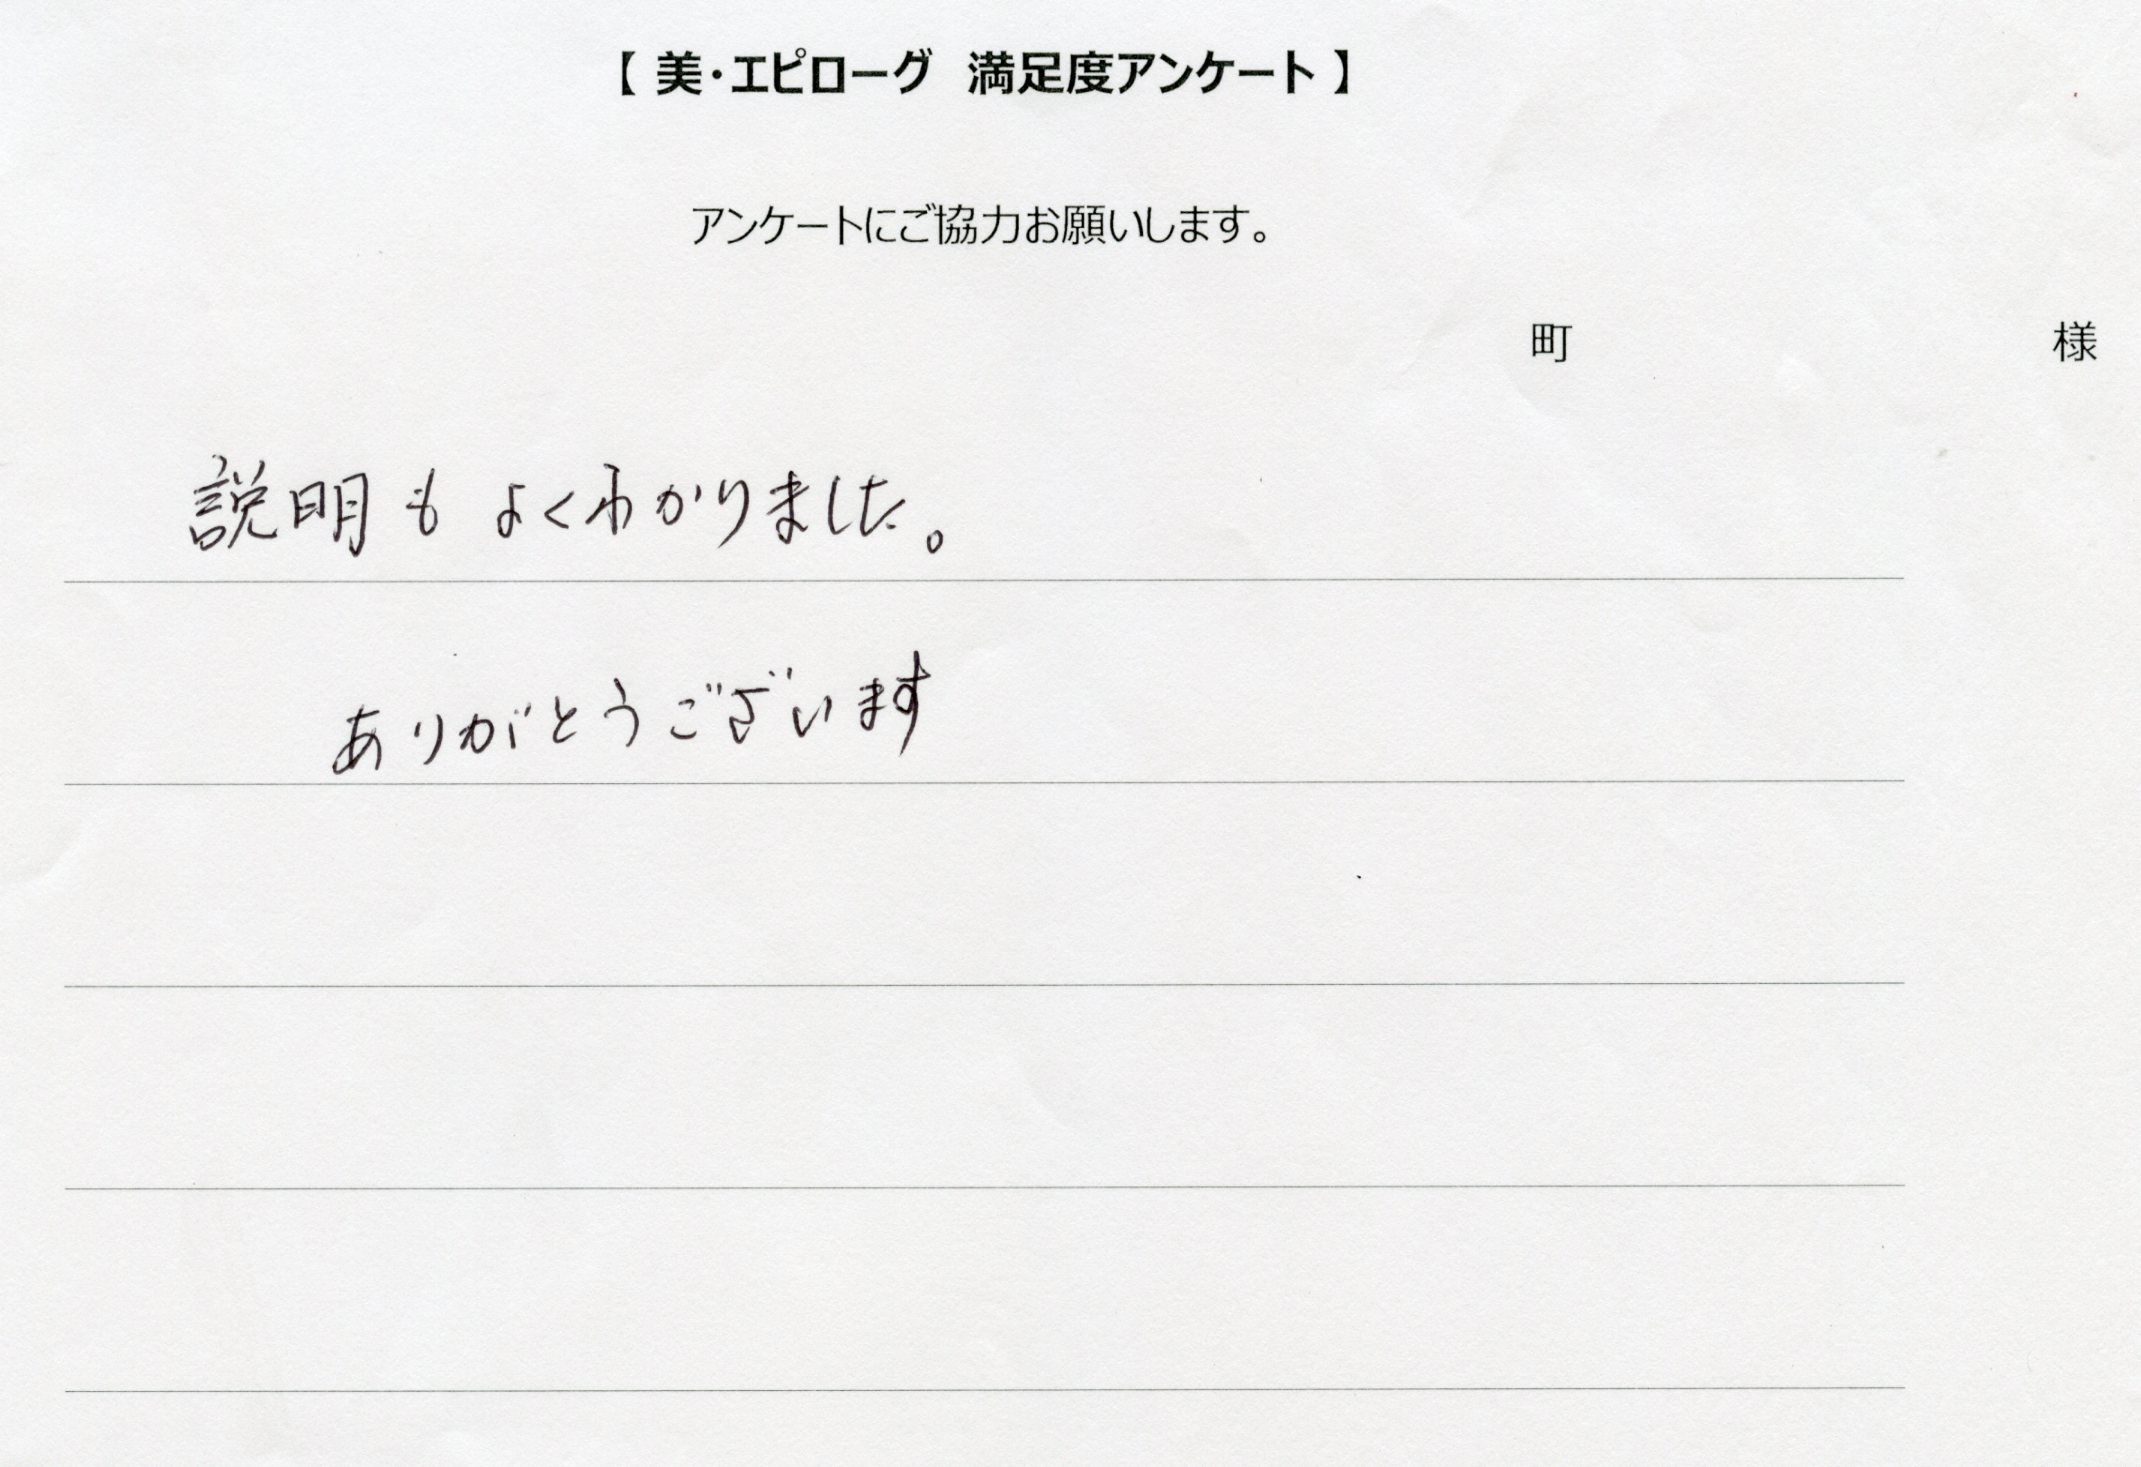 【 美・エピローグ 満足度アンケート 】
アンケートにご協力お願いします。
町 様
説明もよくわかりました。
ありがとうございます